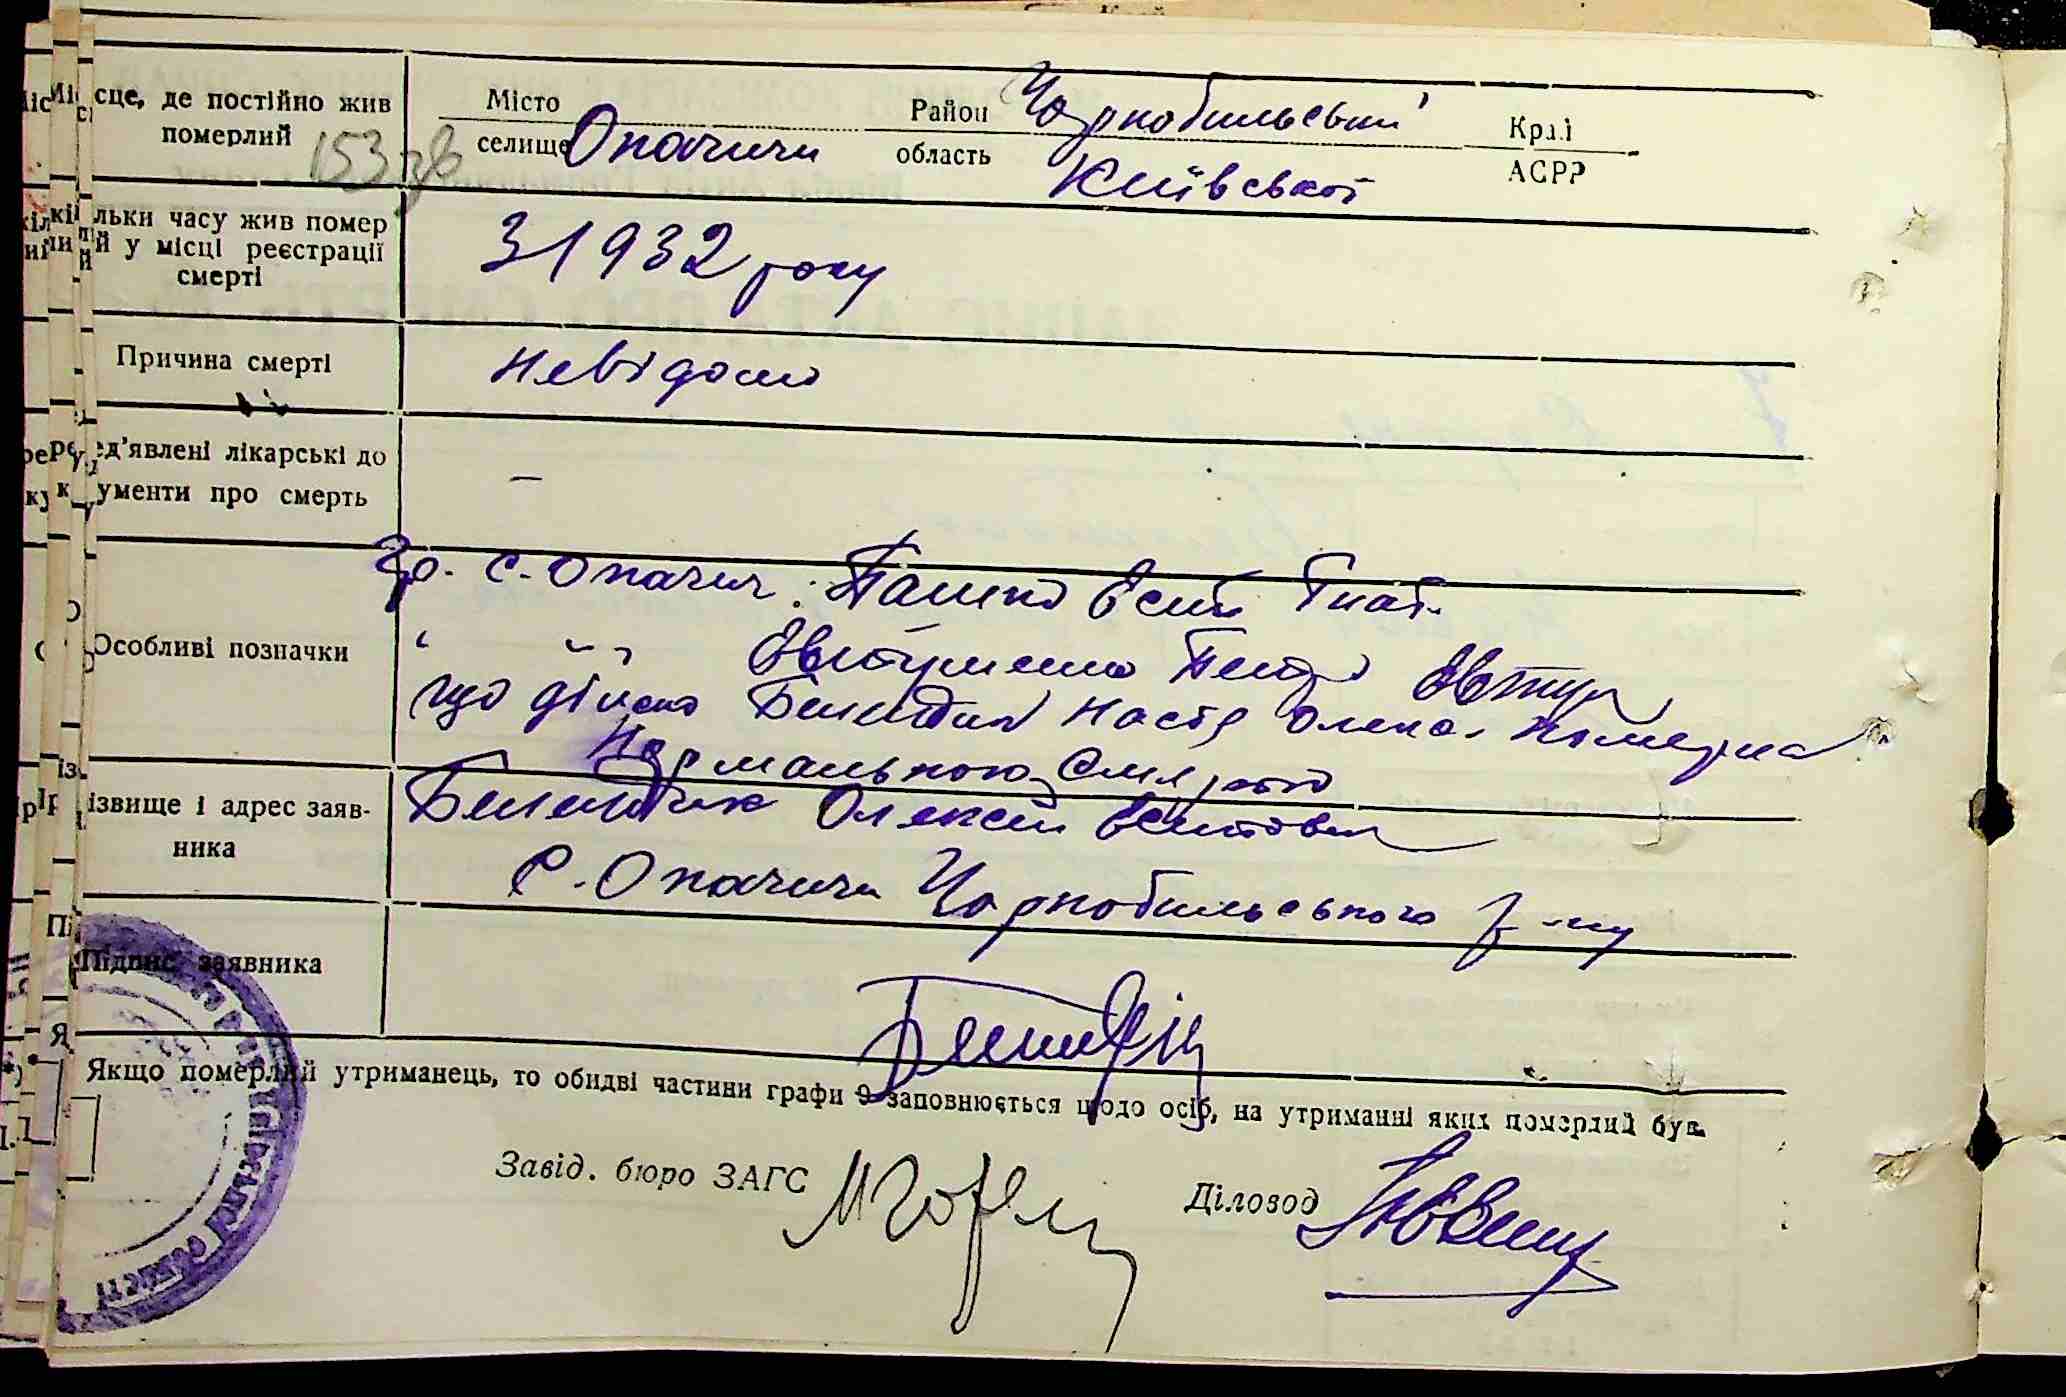 Місце, де постійно жив померлий
153 зв
Місто селище Опачичи
Район Чорнобильський
область Київської
Край АСРР
Скільки часу жив померлий у місці реєстрації смерті
З 1932 року
Причина смерті
невідомо
Пред'явлені лікарські документи про смерть
–
Особливі позначки
Гр. с. Опачич. Пашко Гнат.
" " " Петро
що дійсно Настя Олекс. померла
нормальною смертю
Прізвище і адрес заявника
Олексій
с. Опачичи Чорнобильського р-ну
Підпис заявника
Якщо померлий утриманець, то обидві частини графи 9 заповнюється щодо осіб, на утриманні яких померлий був.
Завід. бюро ЗАГС
Діловод